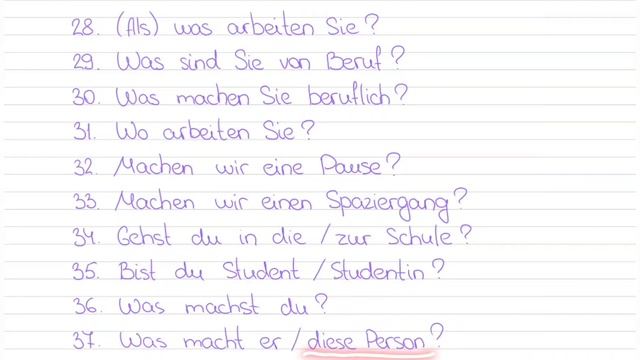 28. (Als) was arbeiten Sie?
29. Was sind Sie von Beruf?
30. Was machen Sie beruflich?
31. Wo arbeiten Sie?
32. Machen wir eine Pause?
33. Machen wir einen Spaziergang?
34. Gehst du in die / zur Schule?
35. Bist du Student / Studentin?
36. Was machst du?
37. Was macht er / diese Person?